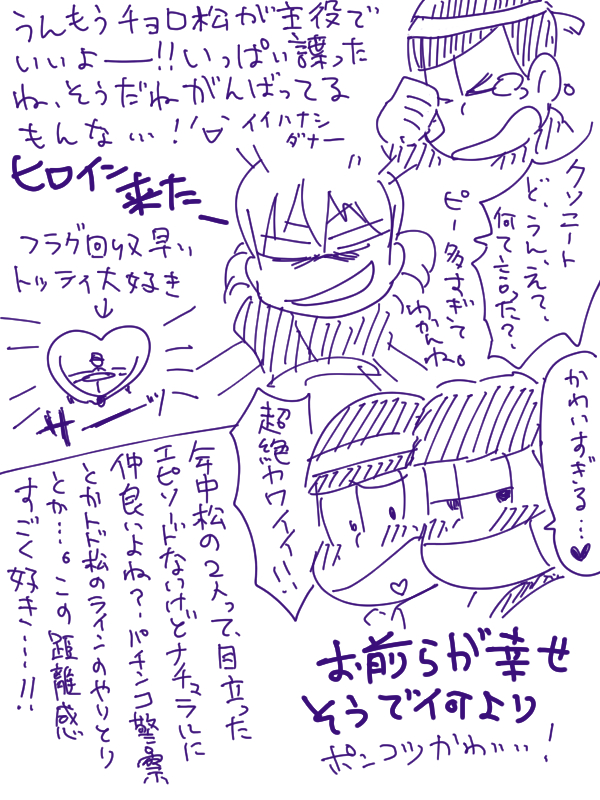 うんもうチョロ松が主役で
いいよー!!いっぱい譲った
ね、そうだねがんばってる
もんな…!
イイハナシ
ダナー
クソニート
ど、うん、え?、
何て言った?、
ピー多すぎて
わかんね。
ヒロイン
来たー
フラグ回収早い
トッティ大好き
↓
ザーッ
かわいすぎる…♥
超絶カワイイ!!
年中松の2人って、目立った
エピソードないけどナチュラルに
仲良いよね?パチンコ警察
とかトド松のラインのやりとり
とか…。この距離感
すごく好き…!!
お前らが幸せ
そうで何より
ポンコツかわいい!